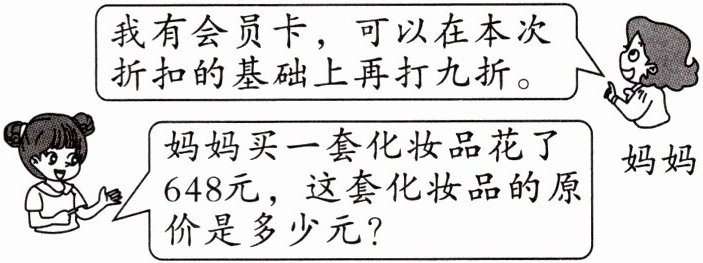 我有会员卡，可以在本次
折扣的基础上再打九折。
妈妈买一套化妆品花了
648元，这套化妆品的原
价是多少元？
妈妈